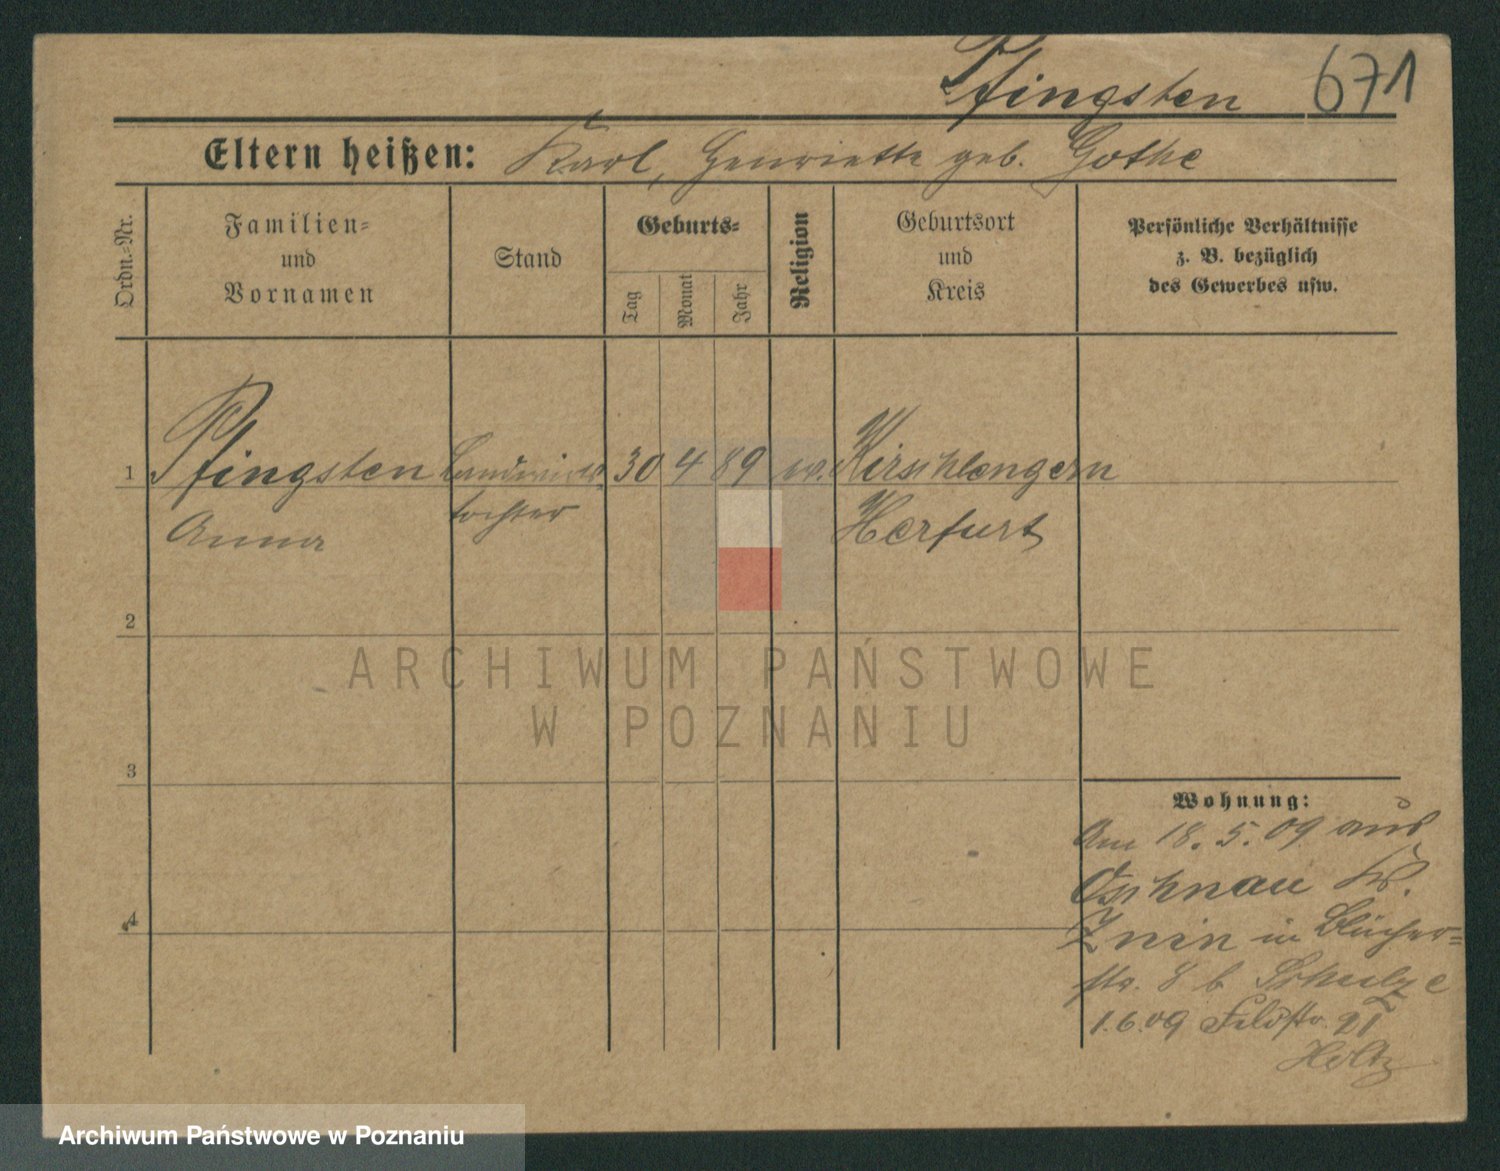 Pfingsten 671
Eltern heißen: Karl, Henriette geb. Gothe
Ordn.-Nr.
Familien-
und
Vornamen
Stand
Geburts-
Tag
Monat
Jahr
Religion
Geburtsort
und
Kreis
Persönliche Verhältnisse
z. B. bezüglich
des Gewerbes usw.
1 Pfingsten Landwirts 30 4 89 ev. Kirschlengern
Anna tochter Herfurt
2
ARCHIWUM PAŃSTWOWE
W POZNANIU
3
Wohnung:
Am 18.5.09 aus
Oschnau Kr.
4
Znin in Blücher-
str. 8 b Schulze
1.6.09 Feldstr. 21
Archiwum Państwowe w Poznaniu